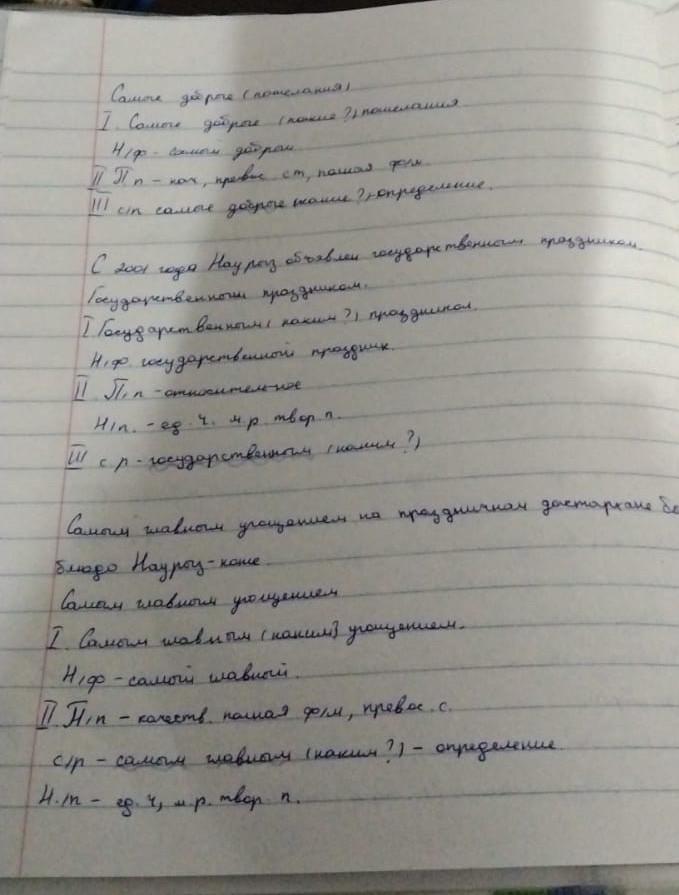 Самые добрые (пожелания)
I. Самые добрые (какие?) пожелания
Н/ф - самый добрый.
II П п - кач, превос ст, полная ф/м.
III с/п самые добрые (какие?) - определение.
С 2001 года Наурыз объявлен государственным праздником.
Государственным праздником.
I Государственным (каким?) праздником.
Н/ф. государственный праздник.
II П/п - относительное
Н/п. - ед. ч. м.р. твор п.
III с р - государственным (каким?)
Самым главным угощением на праздничном дастархане
блюдо Наурыз-коже.
Самым главным угощением
I. Самым главным (каким) угощением.
Н/ф - самый главный.
II П/п - качеств. полная ф/м, превос. с.
с/р - самым главным (каким?) - определение.
Н/п - ед. ч, м.р. твор п.